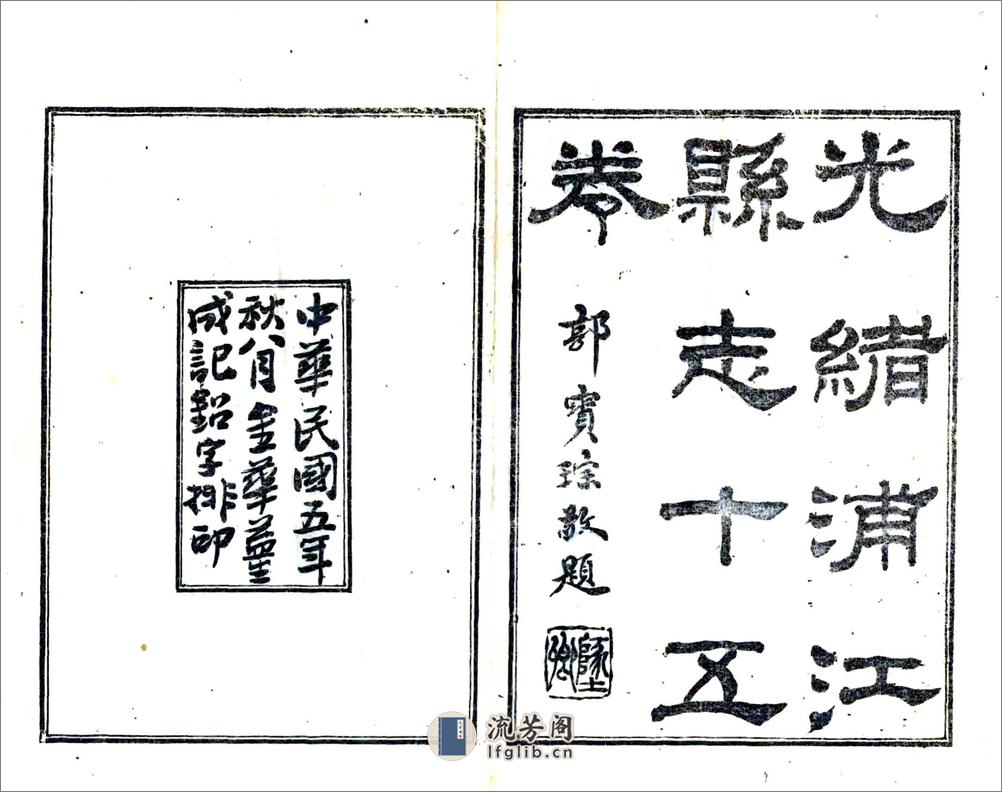 光緒浦江
縣志十五
卷
郭寶琮敬題
中華民國五年
秋八月金華
成記鉛字排印
流芳阁
lfglib.cn